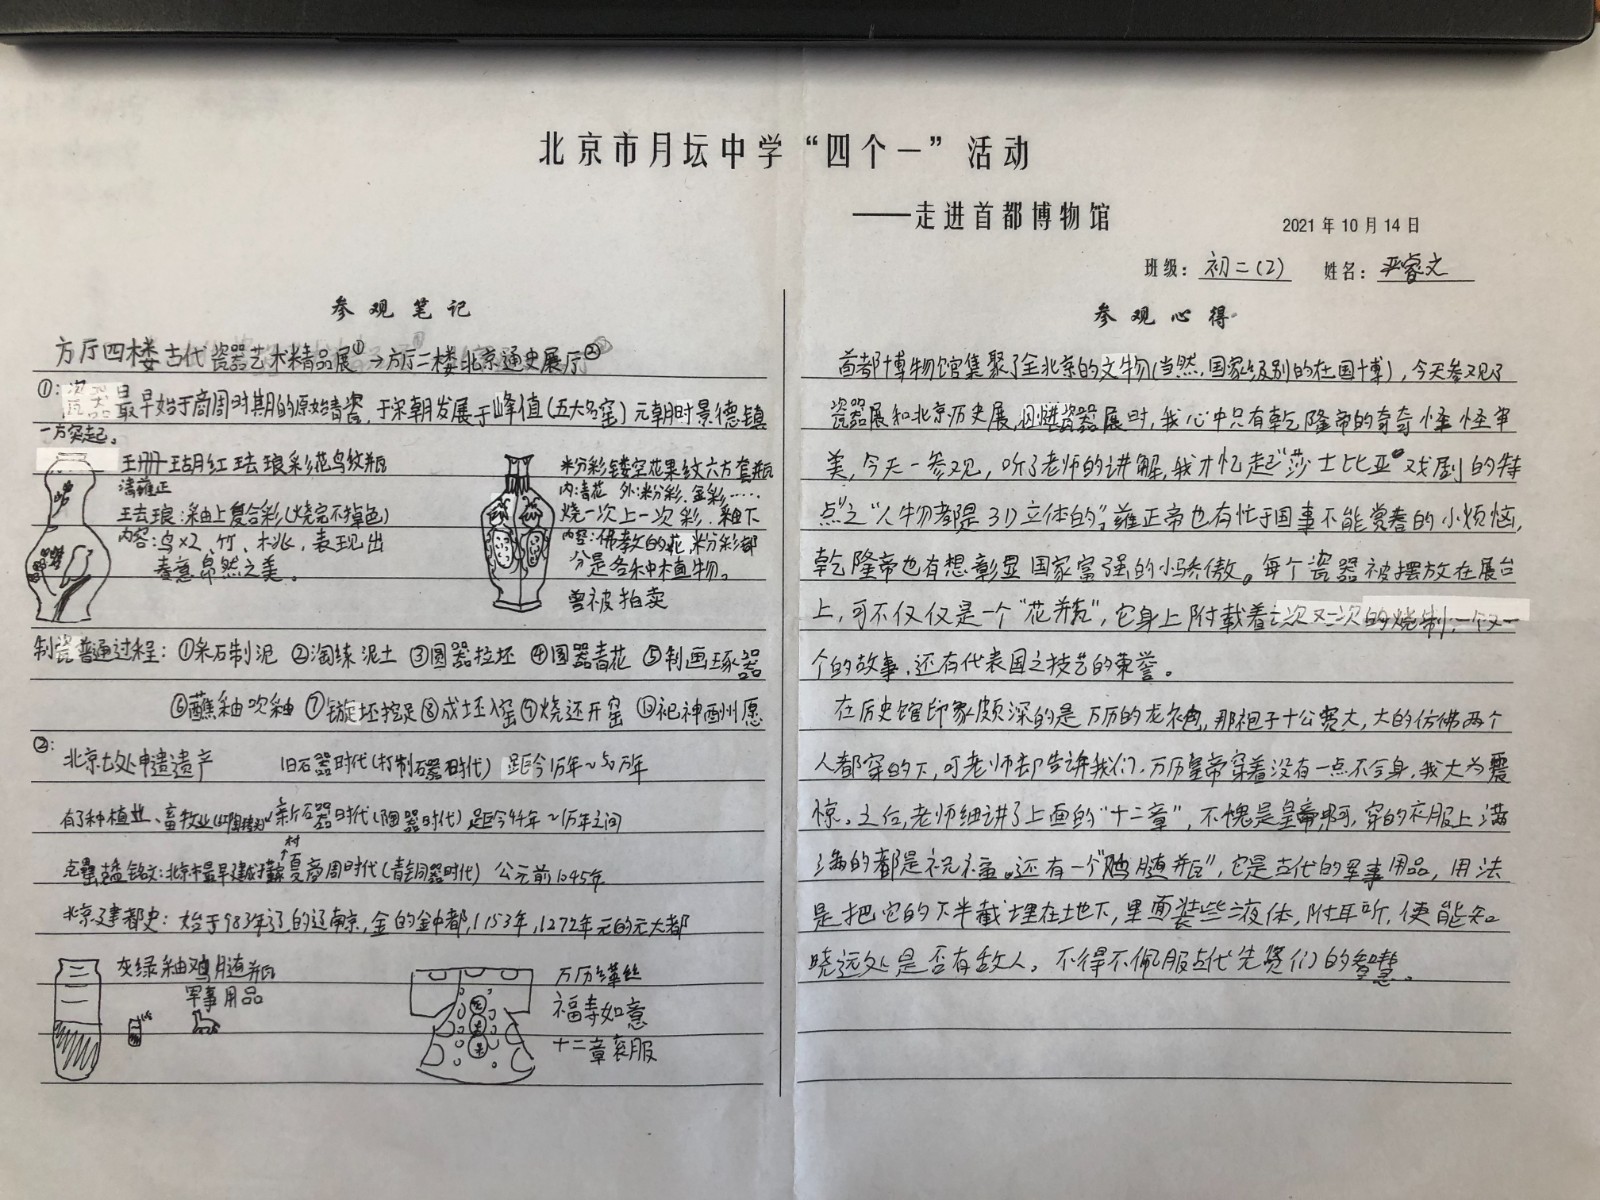 北京市月坛中学“四个一”活动
——走进首都博物馆
2021年10月14日
班级：初二(2) 姓名：严睿文
参观笔记
方厅四楼古代瓷器艺术精品展①→方厅二楼北京通史展厅②
①：瓷器最早始于商周时期的原始青瓷，于宋朝发展于峰值(五大名窑)元朝时景德镇
一方突起。
珊瑚红珐琅彩花鸟纹瓶
清雍正
珐琅：釉上复合彩(烧完不掉色)
内容：鸟×2、竹、桃，表现出
春意昂然之美。
粉彩镂空花果纹六方套瓶
内：青花 外：粉彩、金彩……
烧一次上一次彩．釉下
内容：佛教的花，粉彩部
分是各种植物。
曾被拍卖
制瓷普通过程：①采石制泥 ②淘练泥土 ③圆器拉坯 ④圆器青花 ⑤制画琢器
⑥蘸釉吹釉 ⑦镟坯挖足 ⑧成坯入窑 ⑨烧还开窑 ⑩祀神酬愿
②：
北京七处申遗遗产 旧石器时代(打制石器时代) 距今1万年～50万年
有了种植业、畜牧业 新石器时代(陶器时代) 距今44年～1万年之间
村
克罍 铭文：北京市最早建城 夏商周时代(青铜器时代) 公元前1045年
北京建都史：始于983年辽的辽南京，金的金中都，1153年，1272年元的元大都
灰绿釉鸡腿瓶
军事用品
万历缂丝
福寿如意
十二章衮服
参观心得
首都博物馆集聚了全北京的文物(当然，国家级别的在国博)，今天参观了
瓷器展和北京历史展，刚进瓷器展时，我心中只有乾隆帝的奇奇怪怪审
美，今天一参观，听了老师的讲解，我才忆起“莎士比亚”戏剧的特
点之“人物都是3D立体的”，雍正帝也有忙于国事不能赏看的小烦恼，
乾隆帝也有想彰显国家富强的小骄傲。每个瓷器被摆放在展台
上，可不仅仅是一个“花瓶”，它身上附载着一次又一次的烧制，一个又一
个的故事，还有代表国之技艺的荣誉。
在历史馆印象颇深的是万历的龙袍，那袍子十公宽大，大的仿佛两个
人都穿的下，可老师却告诉我们，万历皇帝穿着没有一点不合身，我大为震
惊。之后，老师细讲了上面的“十二章”，不愧是皇帝啊，穿的衣服上满
满的都是祝福。还有一个“鸡腿瓶”，它是古代的军事用品，用法
是把它的下半截埋在地下，里面装些液体，附耳听，便能知
晓远处是否有敌人。不得不佩服古代先贤们的智慧。